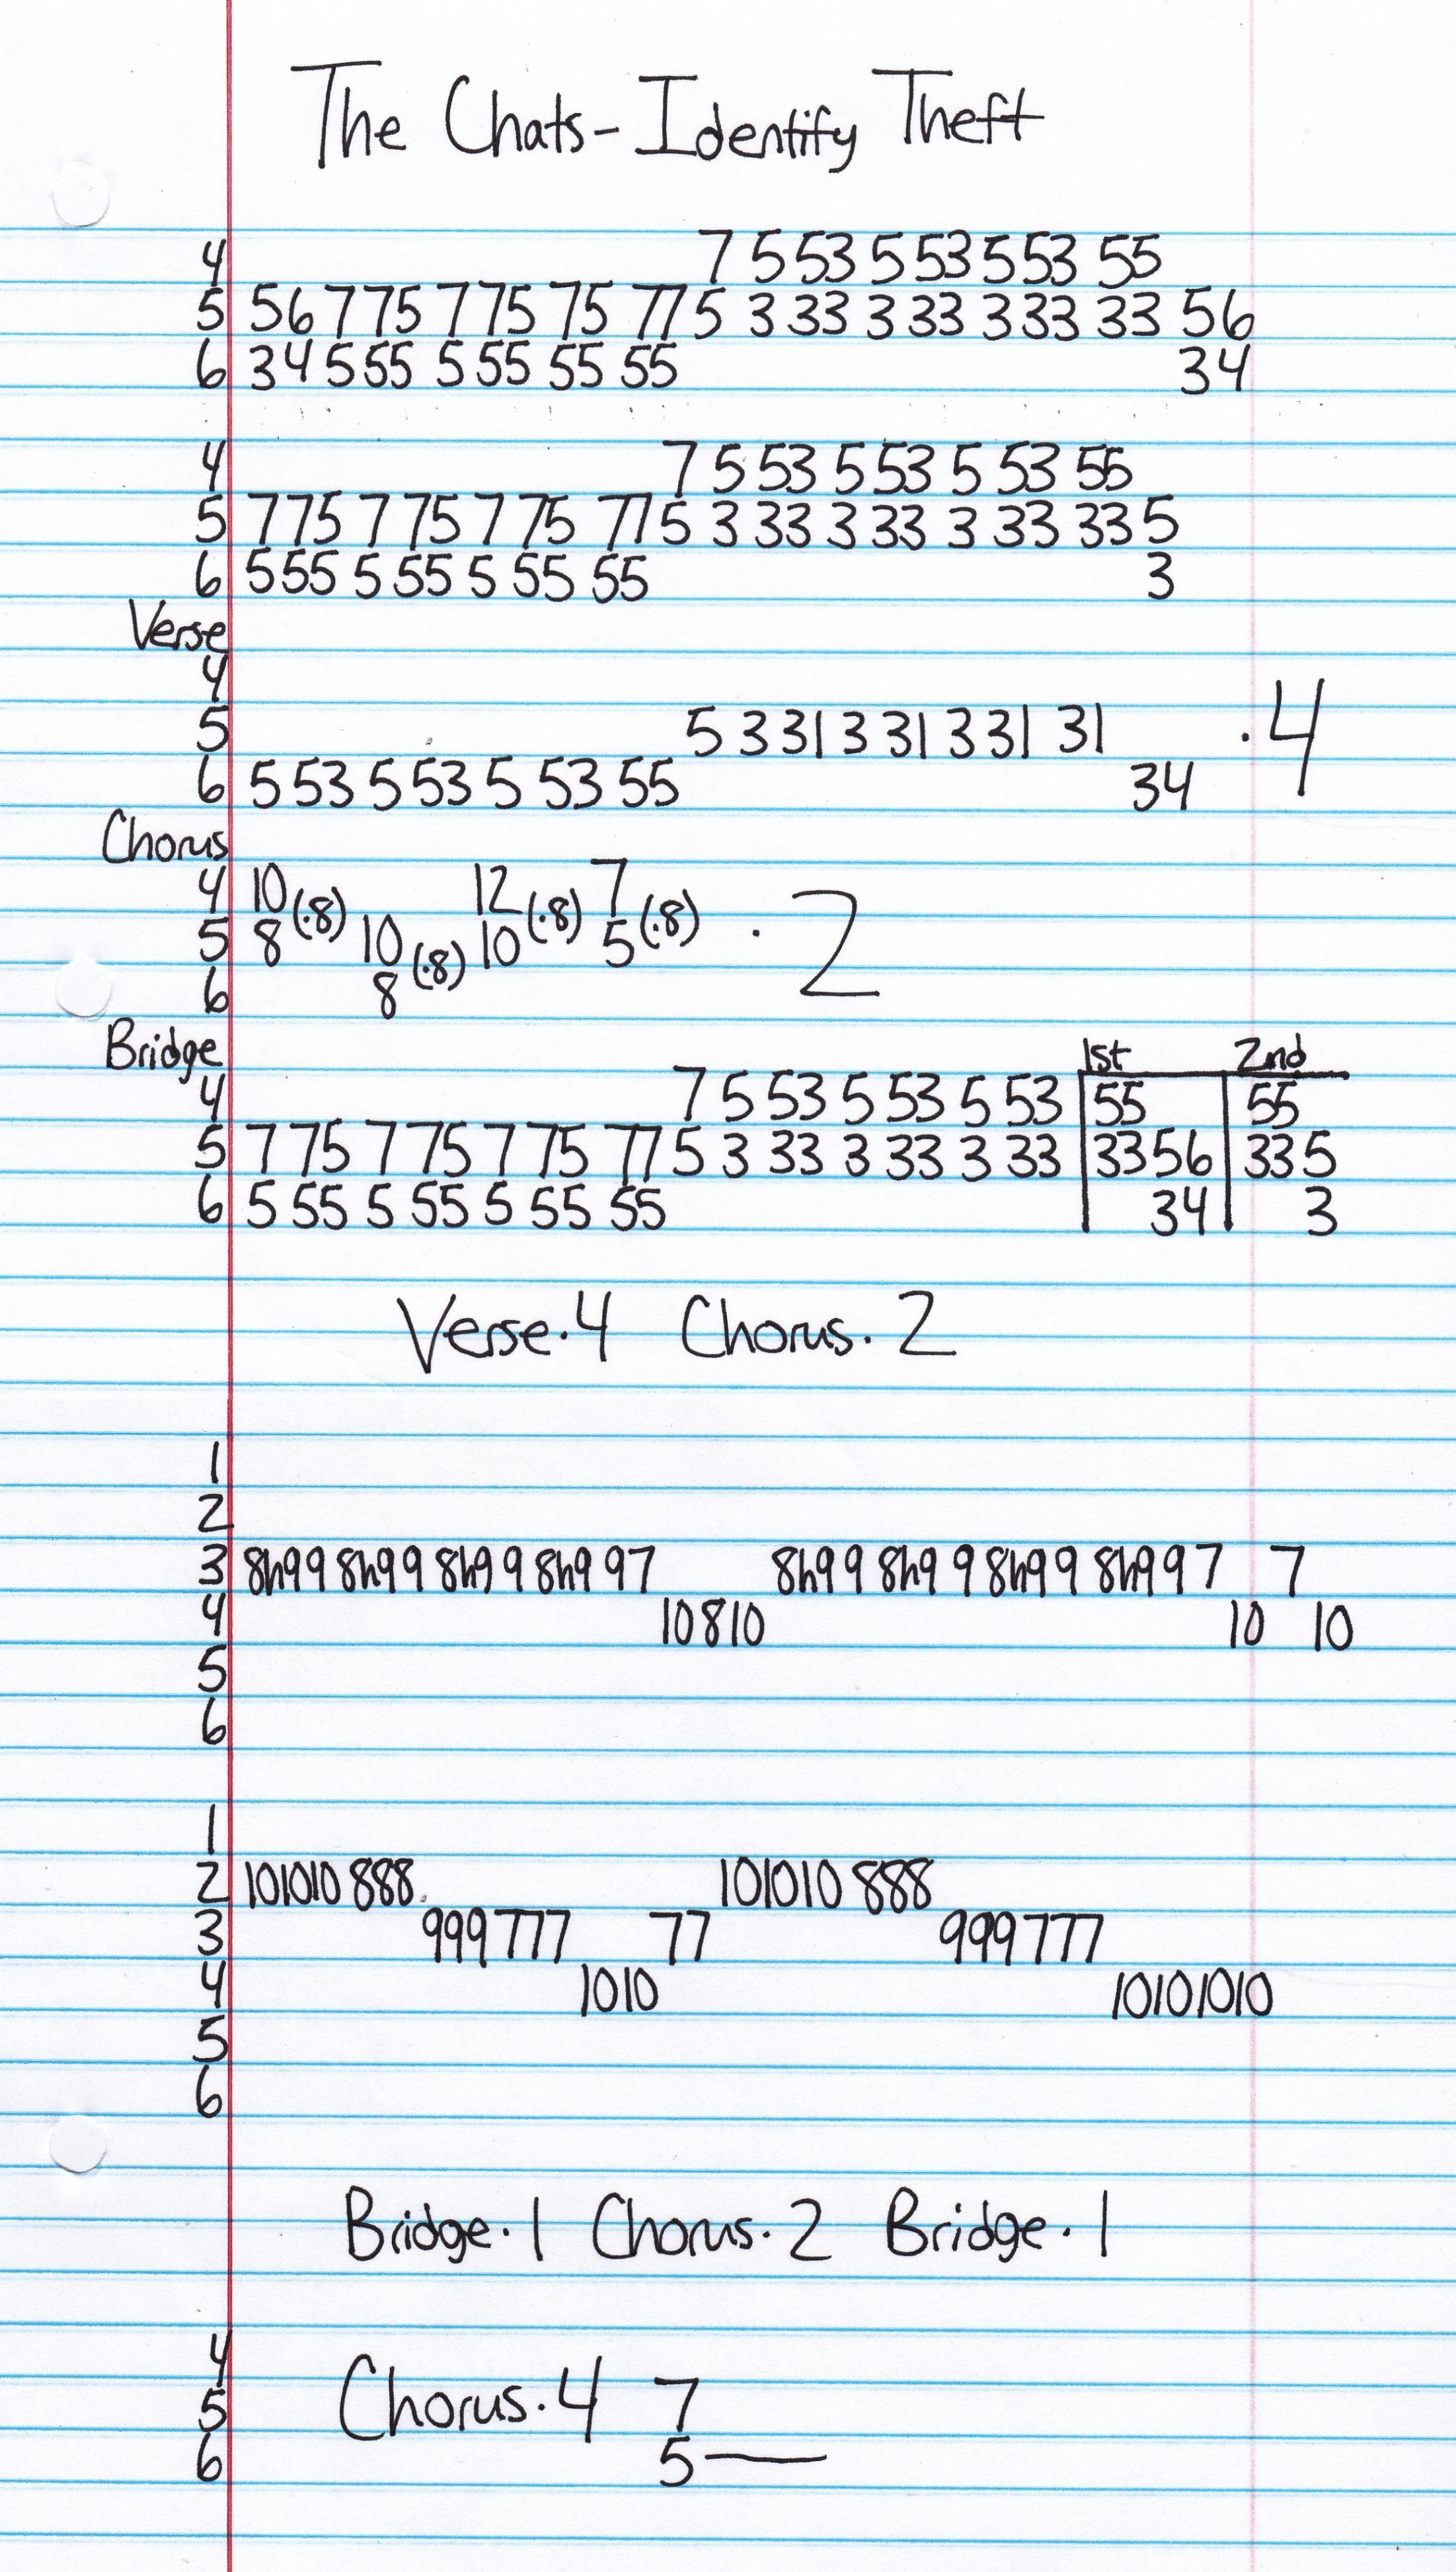 The Chats-Identify Theft
4 7 5 53 5 53 5 53 55
5 56 7 75 7 75 75 77 5 3 33 3 33 3 33 33 56
6 34 5 55 5 55 55 55 34
4 7 5 53 5 53 5 53 55
5 7 75 7 75 7 75 77 5 3 33 3 33 3 33 33 5
6 5 55 5 55 5 55 55 3
Verse
4
5 5 3 31 3 31 3 31 31 · 4
6 5 53 5 53 5 53 55 34
Chorus
4 10 (·8) 12 (·8) 7 (·8)
5 8 10 (·8) 10 5 · 2
6 8
Bridge 1st 2nd
4 7 5 53 5 53 5 53 55 55
5 7 75 7 75 7 75 77 5 3 33 3 33 3 33 33 56 33 5
6 5 55 5 55 5 55 55 34 3
Verse·4 Chorus·2
1
2
3 8h99 8h99 8h99 8h9 97 8h99 8h99 8h99 8h99 7 7
4 10 8 10 10 10
5
6
1
2 101010 888 101010 888
3 999 777 77 999 777
4 1010 10101010
5
6
Bridge·1 Chorus·2 Bridge·1
4
5 Chorus·4 7
6 5—